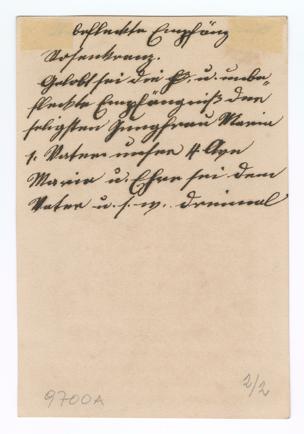 befleckte Empfäng
Rosenkranz.
Gelobt sei die hl. u. unbe-
fleckte Empfängniß der
seligsten Jungfrau Maria
1. Vater unser 4 Ave
Maria u. Ehre sei dem
Vater u. s. w. dreimal
9700A
2/2